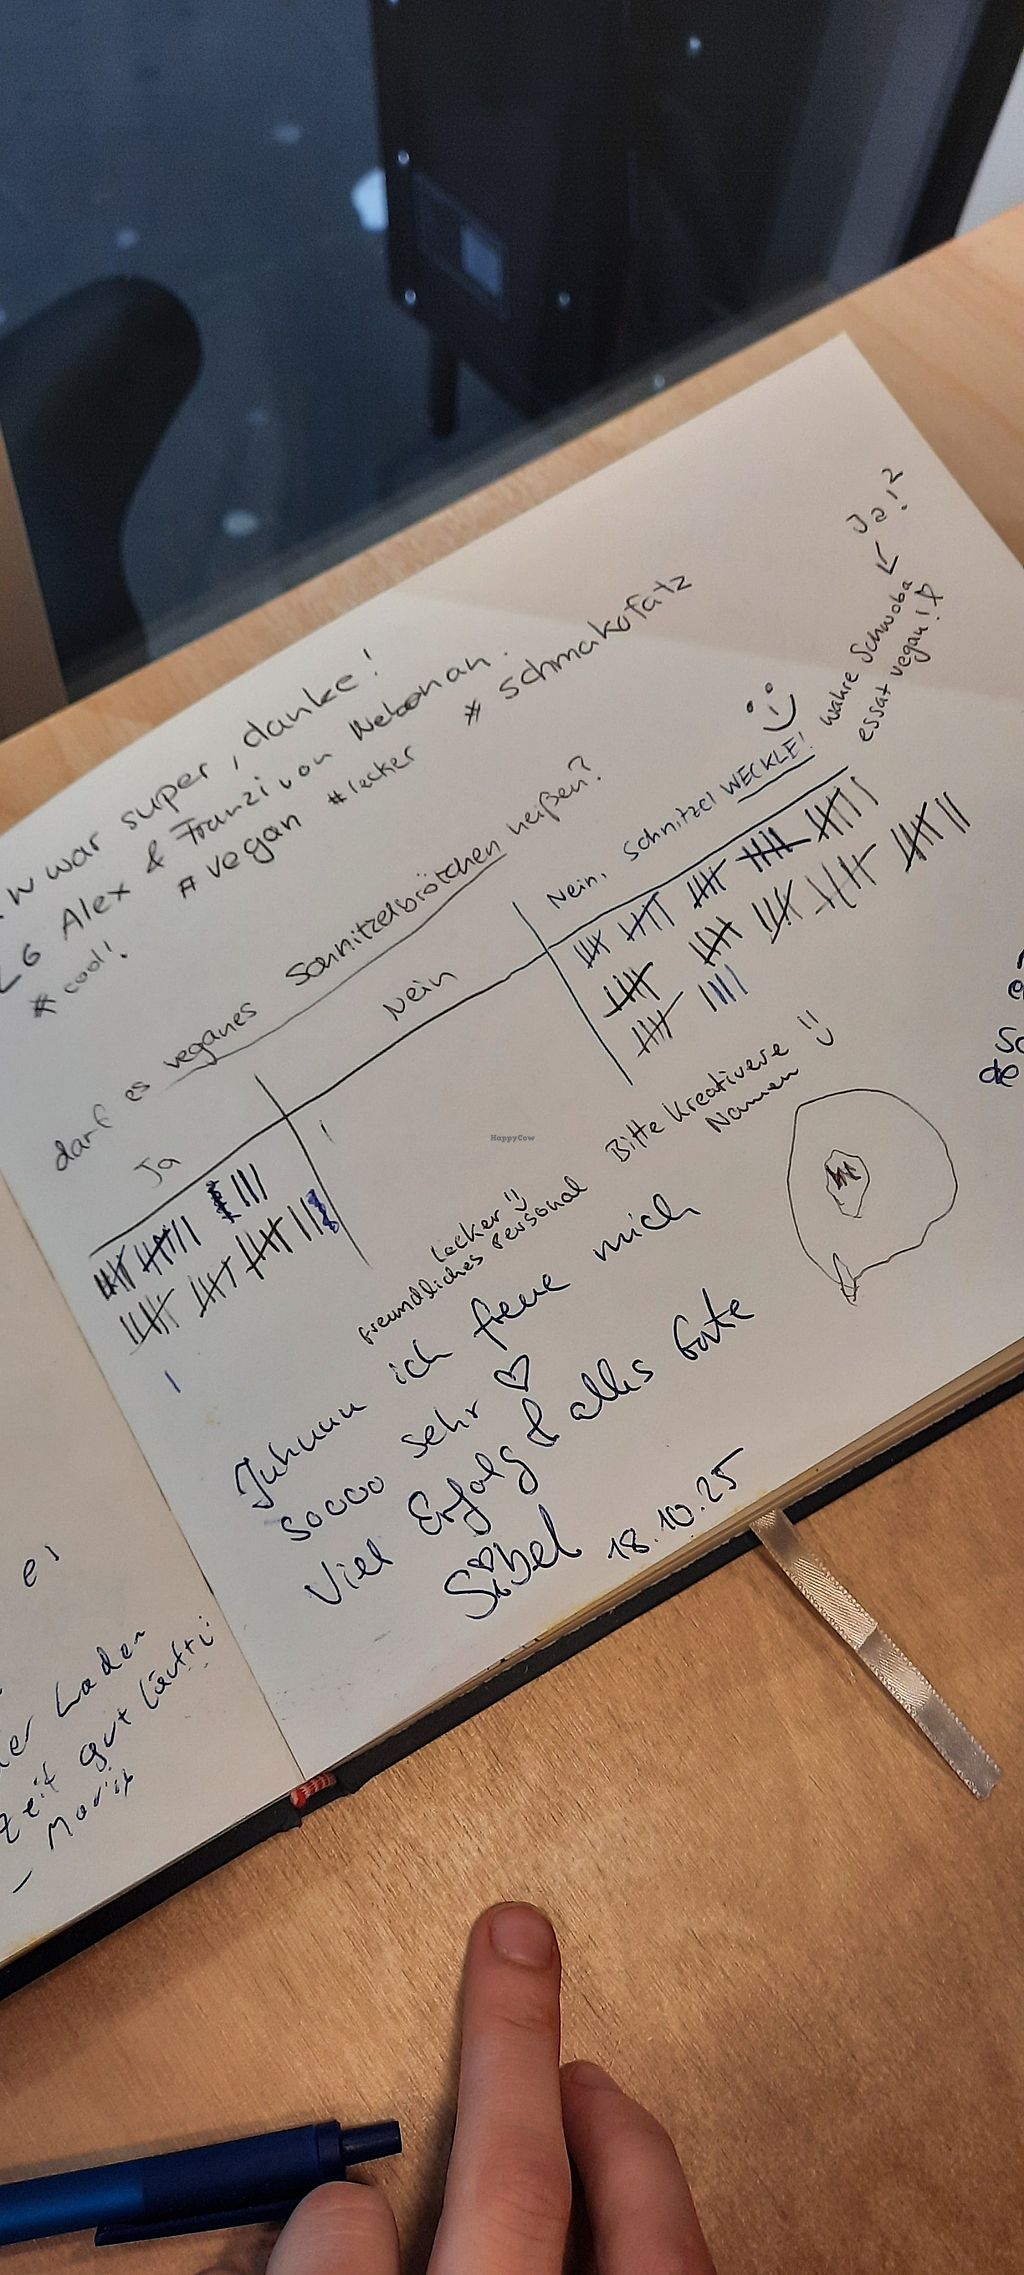 w war super, danke!
LG Alex & Franzi von Nebenan.
# cool! # vegan # lecker # schmakofatz
darf es veganes Schnitzelbrötchen heißen?
Ja
Nein
Nein, Schnitzel WECKLE!
Ja!²
wahre Schwoba
essat vegan!
Bitte Kreativere
Namen
lecker
freundliches Personal
Juhuuu ich freue mich
soooo sehr
Viel Erfolg & alles Gute
Sibel 18.10.25
es
Laden
Zeit gut läuft
HappyCow